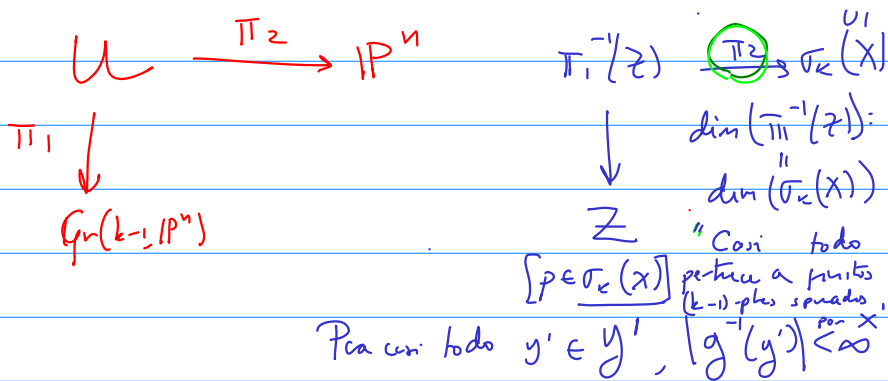 U —π₂→ ℙⁿ
π₁ ↓
Gr(k-1, ℙⁿ)
π₁⁻¹(Z) —π₂→ σₖ(X)
∪|
↓
Z
dim(π₁⁻¹(Z)):
=
dim(σₖ(X))
"Casi todo
[p ∈ σₖ(X)] pertenece a finitos
(k-1)-planos
por X,
Para casi todo y' ∈ Y', |g⁻¹(y')| < ∞